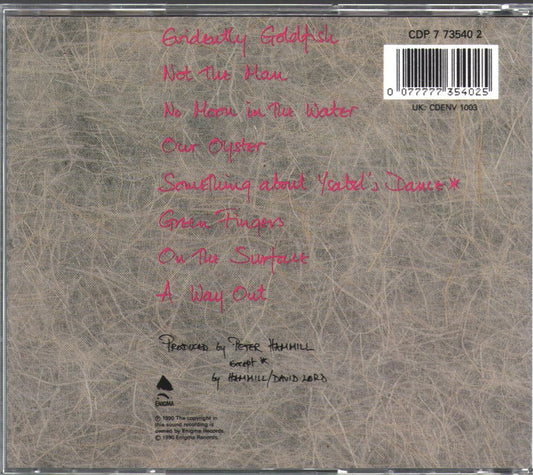 CDP 7 73540 2
0 077777 354025
UK: CDENV 1003
Evidently Goldfish
Not The Man
No Moon in The Water
Our Oyster
Something about Ysabel's Dance *
Green Fingers
On The Surface
A Way Out
PRODUCED by PETER HAMMILL
EXCEPT *
by HAMMILL/DAVID LORD
ENIGMA
℗ 1990 The copyright in
this sound recording is
owned by Enigma Records.
© 1990 Enigma Records.